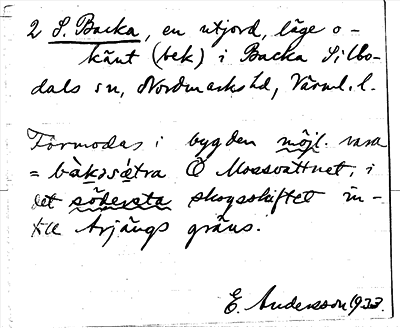 2 S. Backa, en utjord, läge o-
känt (bek) i Backa Silbo-
dals sn, Nordmarks hd, Värml. l.
Förmodas i bygden möjl. vara
= bàkəsǽtra Ö Mossvattnet, i
det södersta skogsskiftet in-
till Årjängs gräns.
E. Andersson 1933.